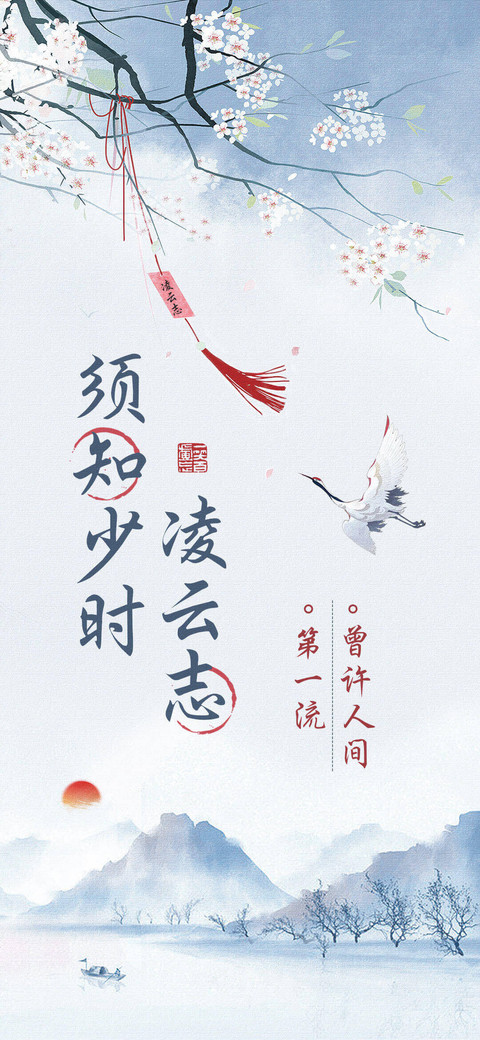 凌云志
须知少时
凌云志
曾许人间
第一流